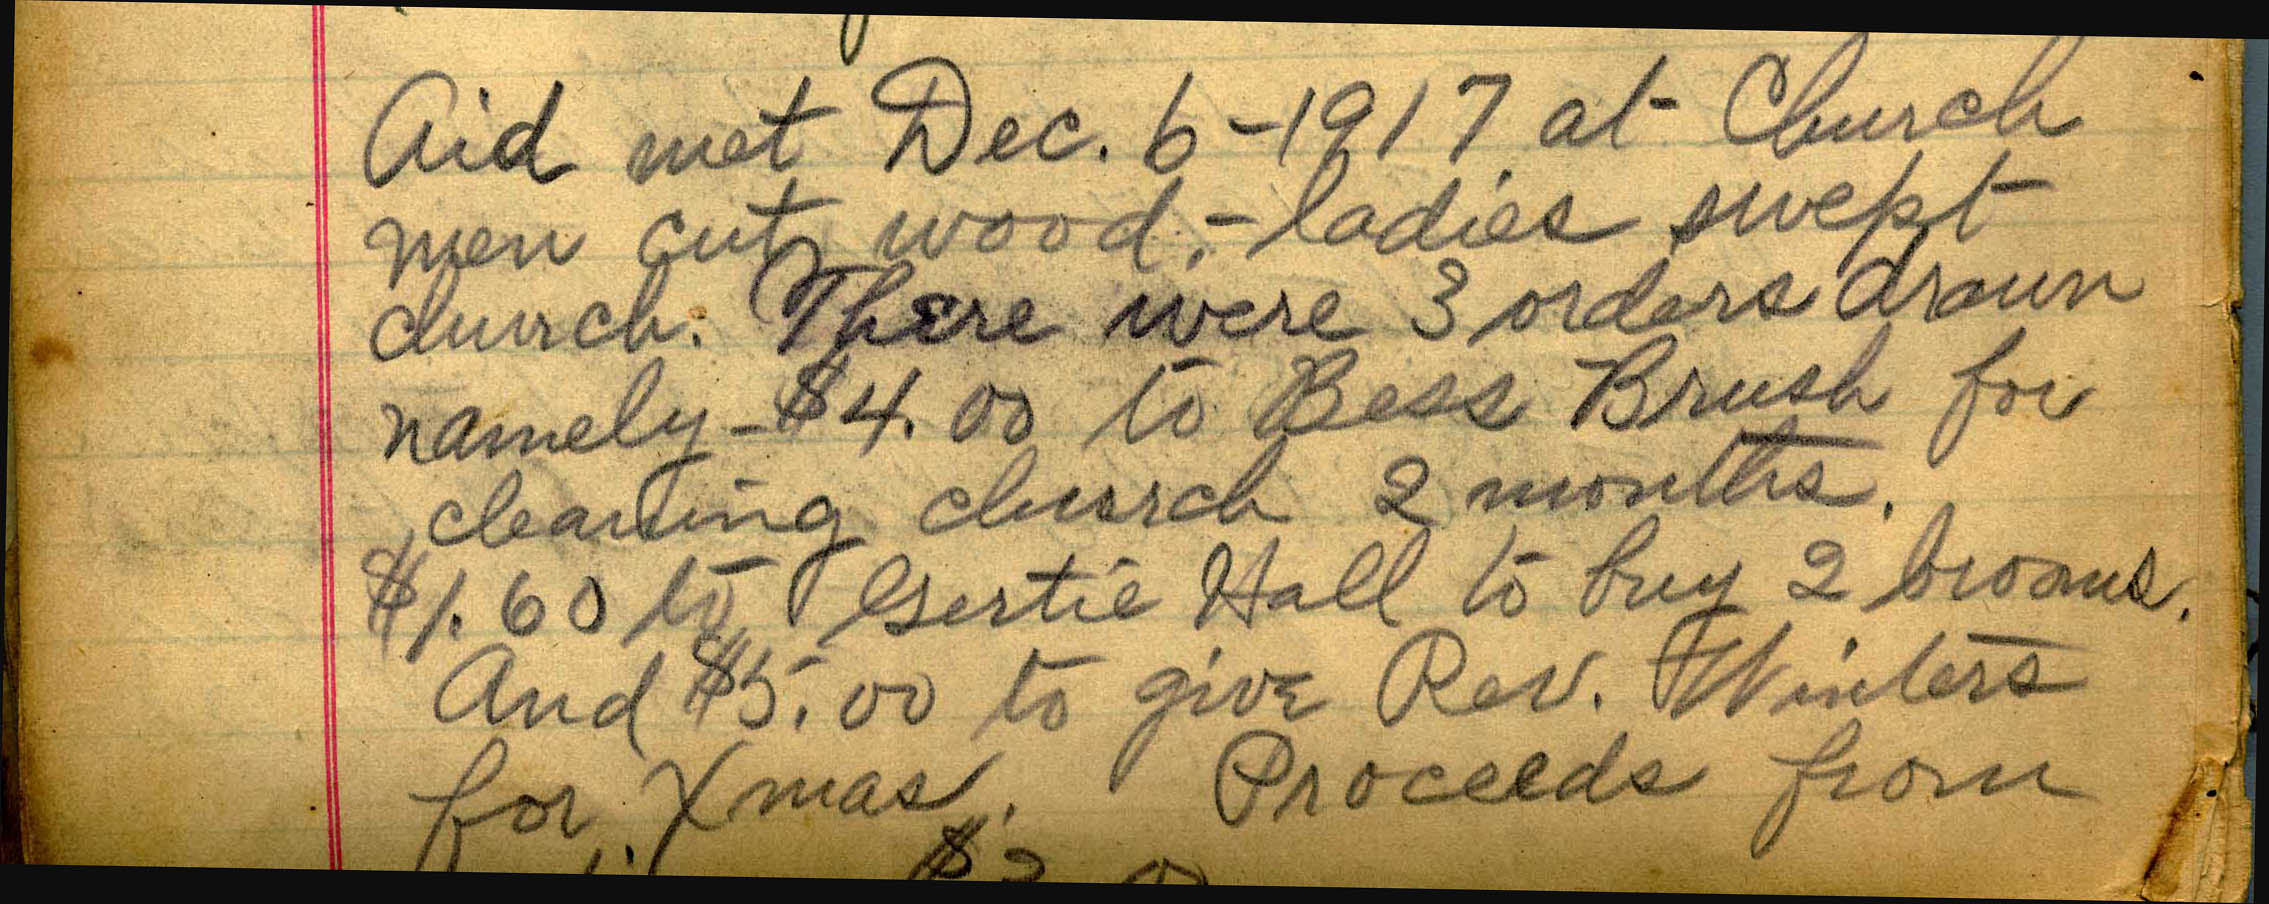 Aid met Dec. 6-1917 at Church
men cut wood,- ladies swept
church. There were 3 orders drawn
namely - $4.00 to Bess Brush for
cleaning church 2 months.
$1.60 to Gertie Hall to buy 2 brooms.
And $5.00 to give Rev. Winters
for Xmas. Proceeds from